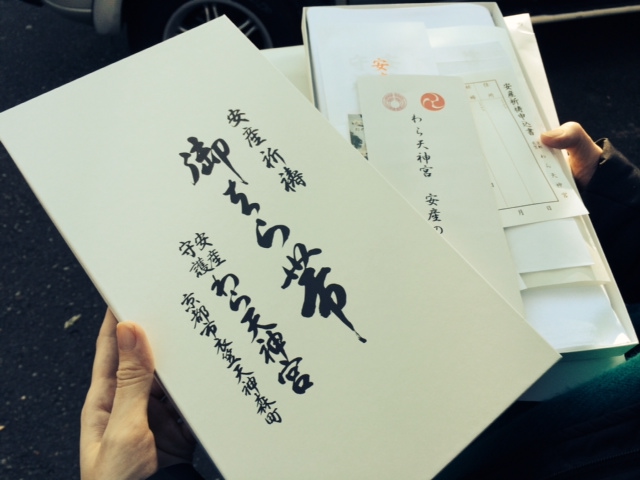 安産祈祷
御はら帯
安産
守護
わら天神宮
京都市衣笠天神森町
安
わら天神宮 安産の
安産祈祷申込書
わら天神宮
月 日